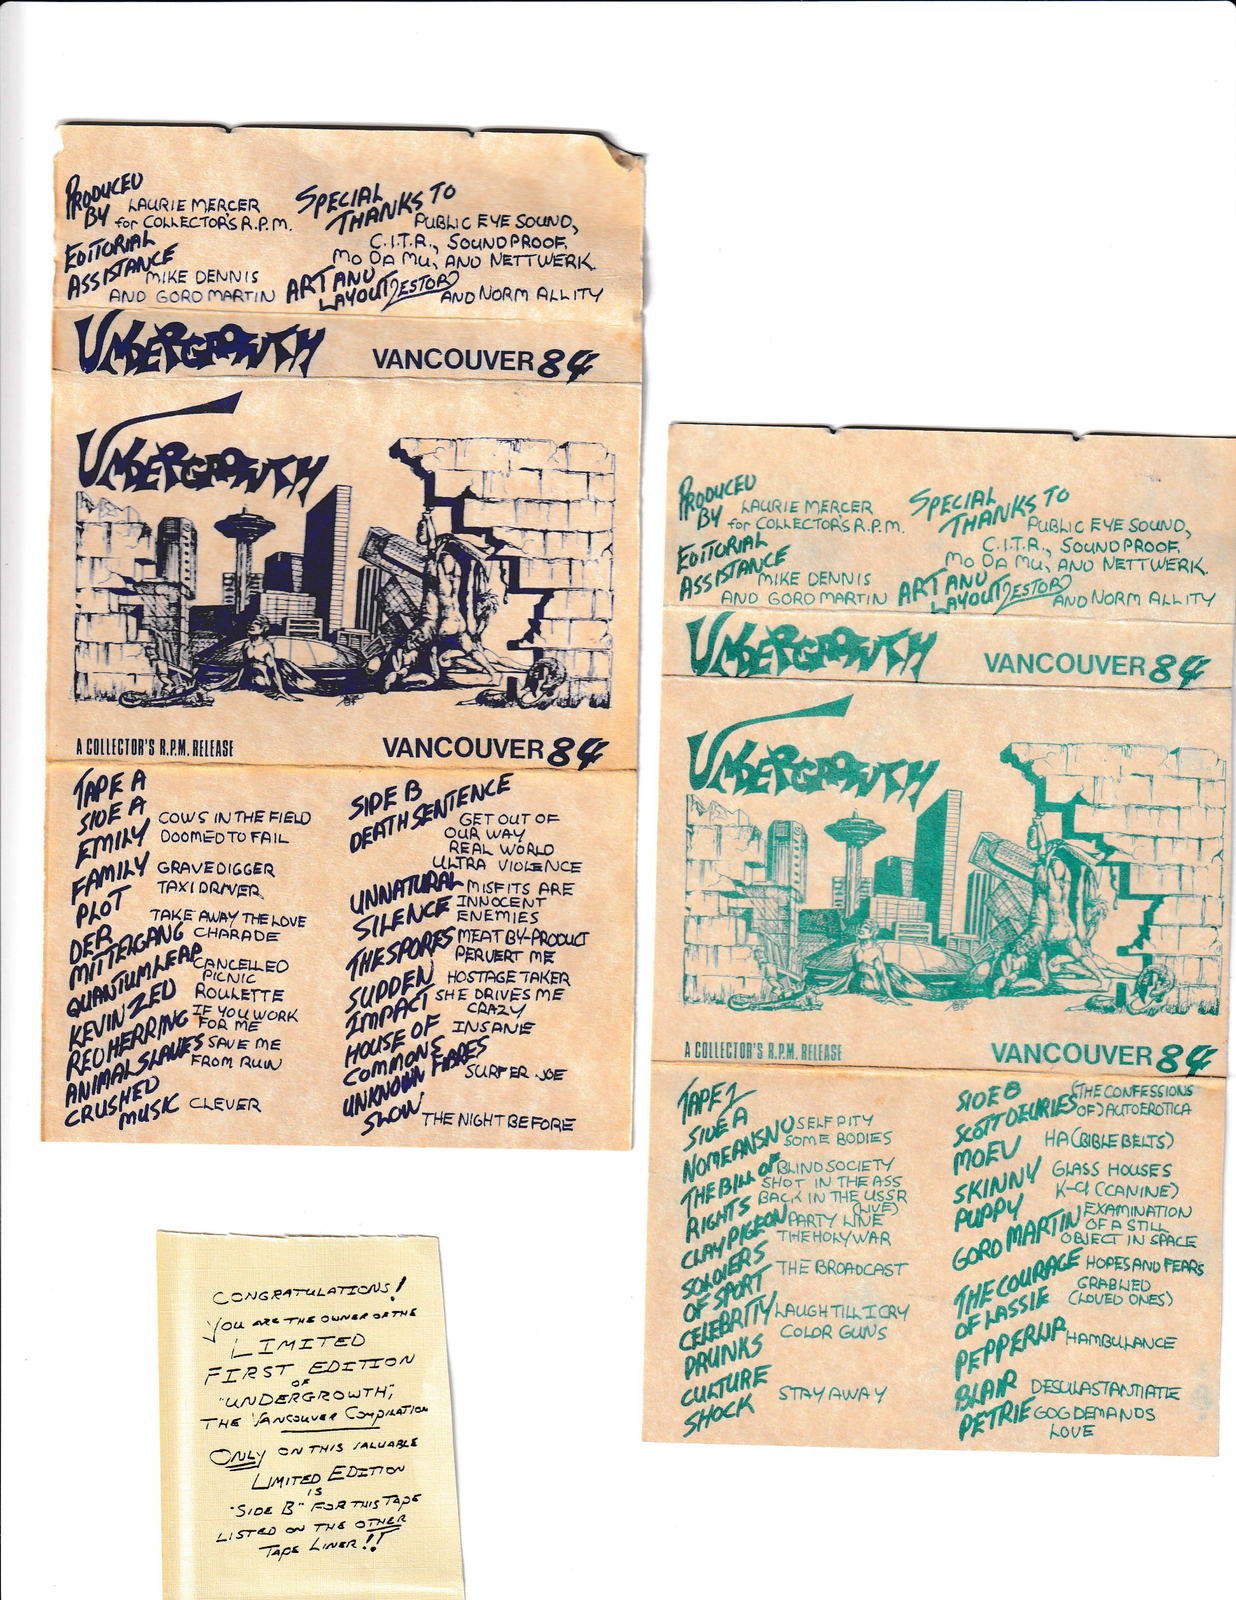 PRODUCED
BY LAURIE MERCER
for COLLECTOR'S R.P.M.
EDITORIAL
ASSISTANCE
MIKE DENNIS
AND GORD MARTIN
SPECIAL
THANKS TO
PUBLIC EYE SOUND,
C.I.T.R., SOUNDPROOF,
MO DA MU, AND NETTWERK.
ART AND
LAYOUT ZESTOR
AND NORM ALLITY
UNDERGROWTH VANCOUVER 84
UNDERGROWTH
A COLLECTOR'S R.P.M. RELEASE VANCOUVER 84
TAPE A
SIDE A
EMILY COWS IN THE FIELD
DOOMED TO FAIL
FAMILY PLOT GRAVEDIGGER
TAXI DRIVER
DER MITTELGANG TAKE AWAY THE LOVE
CHARADE
QUANTUM LEAP CANCELLED
PICNIC
KEVIN ZED ROULETTE
RED HERRING IF YOU WORK
FOR ME
ANIMAL SLAVES SAVE ME
FROM RUIN
CRUSHED
MUSIC CLEVER
SIDE B
DEATH SENTENCE
GET OUT OF
OUR WAY
REAL WORLD
ULTRA VIOLENCE
UNNATURAL
SILENCE MISFITS ARE
INNOCENT
ENEMIES
THE SPORES MEAT BY-PRODUCT
PERVERT ME
SUDDEN
IMPACT HOSTAGE TAKER
SHE DRIVES ME
CRAZY
HOUSE OF
COMMONS INSANE
UNKNOWN FIBRES
SURFER JOE
SLOW THE NIGHT BEFORE
PRODUCED
BY LAURIE MERCER
for COLLECTOR'S R.P.M.
EDITORIAL
ASSISTANCE
MIKE DENNIS
AND GORD MARTIN
SPECIAL
THANKS TO
PUBLIC EYE SOUND,
C.I.T.R., SOUNDPROOF,
MO DA MU, AND NETTWERK.
ART AND
LAYOUT ZESTOR
AND NORM ALLITY
UNDERGROWTH VANCOUVER 84
UNDERGROWTH
A COLLECTOR'S R.P.M. RELEASE VANCOUVER 84
TAPE 1
SIDE A
NOMEANSNO SELF PITY
SOME BODIES
THE BILL OF
RIGHTS BLIND SOCIETY
SHOT IN THE ASS
BACK IN THE USSR
(LIVE)
CLAY PIGEON PARTY LINE
THE HOLY WAR
SOLDIERS
OF SPORT THE BROADCAST
CELEBRITY
DRUNKS LAUGH TILL I CRY
COLOR GUNS
CULTURE
SHOCK STAY AWAY
SIDE B
SCOTT DEURIES (THE CONFESSIONS
OF) AUTOEROTICA
MOEV HA (BIBLE BELTS)
SKINNY
PUPPY GLASS HOUSES
K-9 (CANINE)
GORD MARTIN EXAMINATION
OF A STILL
OBJECT IN SPACE
THE COURAGE
OF LASSIE HOPES AND FEARS
GRABLIED
(LOVED ONES)
PEPPERUP HAMBULANCE
BLAIR
PETRIE DESULASTANTIATIE
GOG DEMANDS
LOVE
CONGRATULATIONS!
YOU ARE THE OWNER OF THE
LIMITED
FIRST EDITION
OF
"UNDERGROWTH",
THE VANCOUVER COMPILATION
ONLY ON THIS VALUABLE
LIMITED EDITION
IS
"SIDE B" FOR THIS TAPE
LISTED ON THE OTHER
TAPE LINER!!